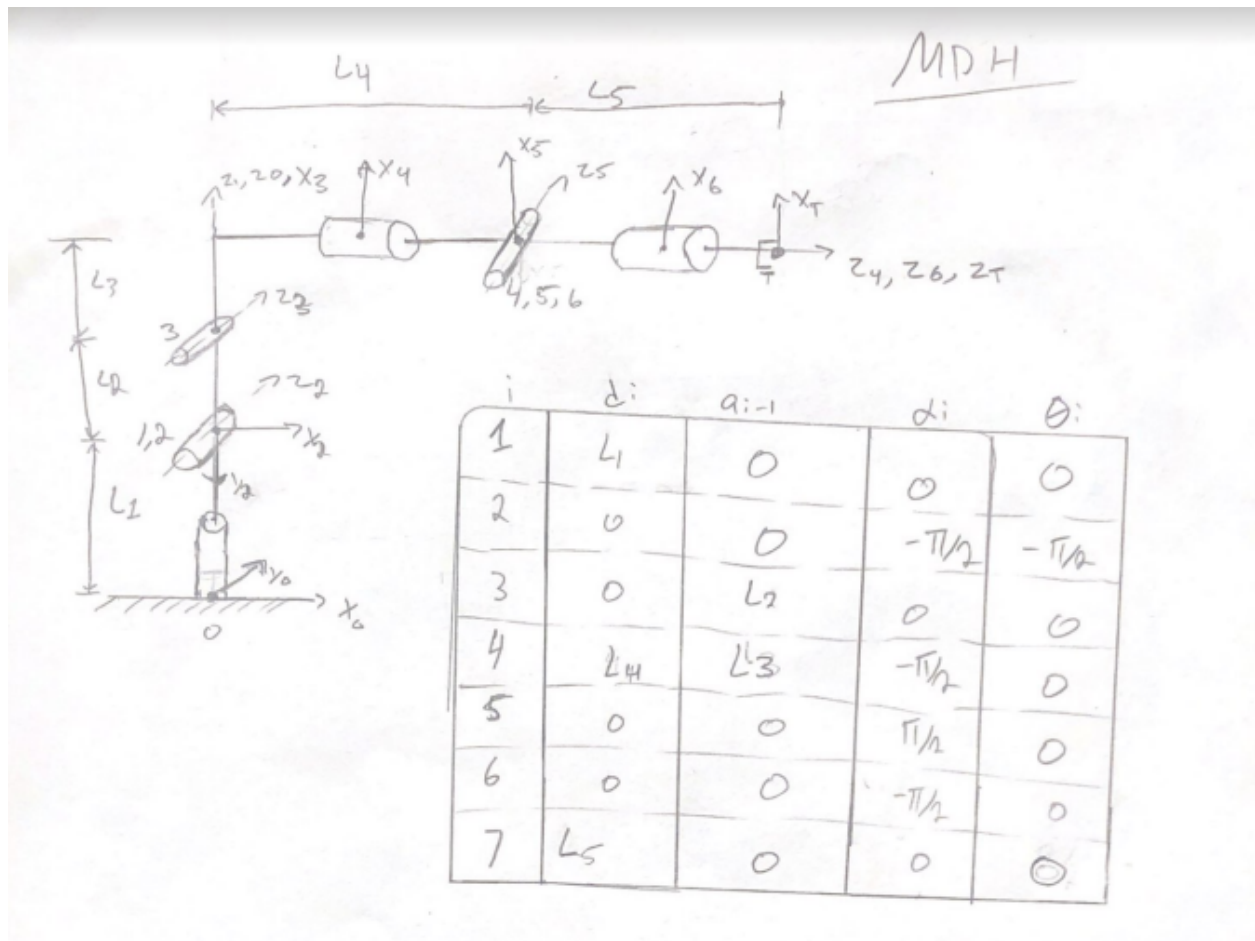 MDH
L4
L5
z1, z0, x3
x4
x5
z5
x6
xT
T
z4, z6, zT
4,5,6
L3
3
z3
L2
z2
1,2
x2
y2
L1
y0
x0
0
i di ai-1 αi θi
1 L1 0 0 0
2 0 0 -π/2 -π/2
3 0 L2 0 0
4 L4 L3 -π/2 0
5 0 0 π/2 0
6 0 0 -π/2 0
7 L5 0 0 0